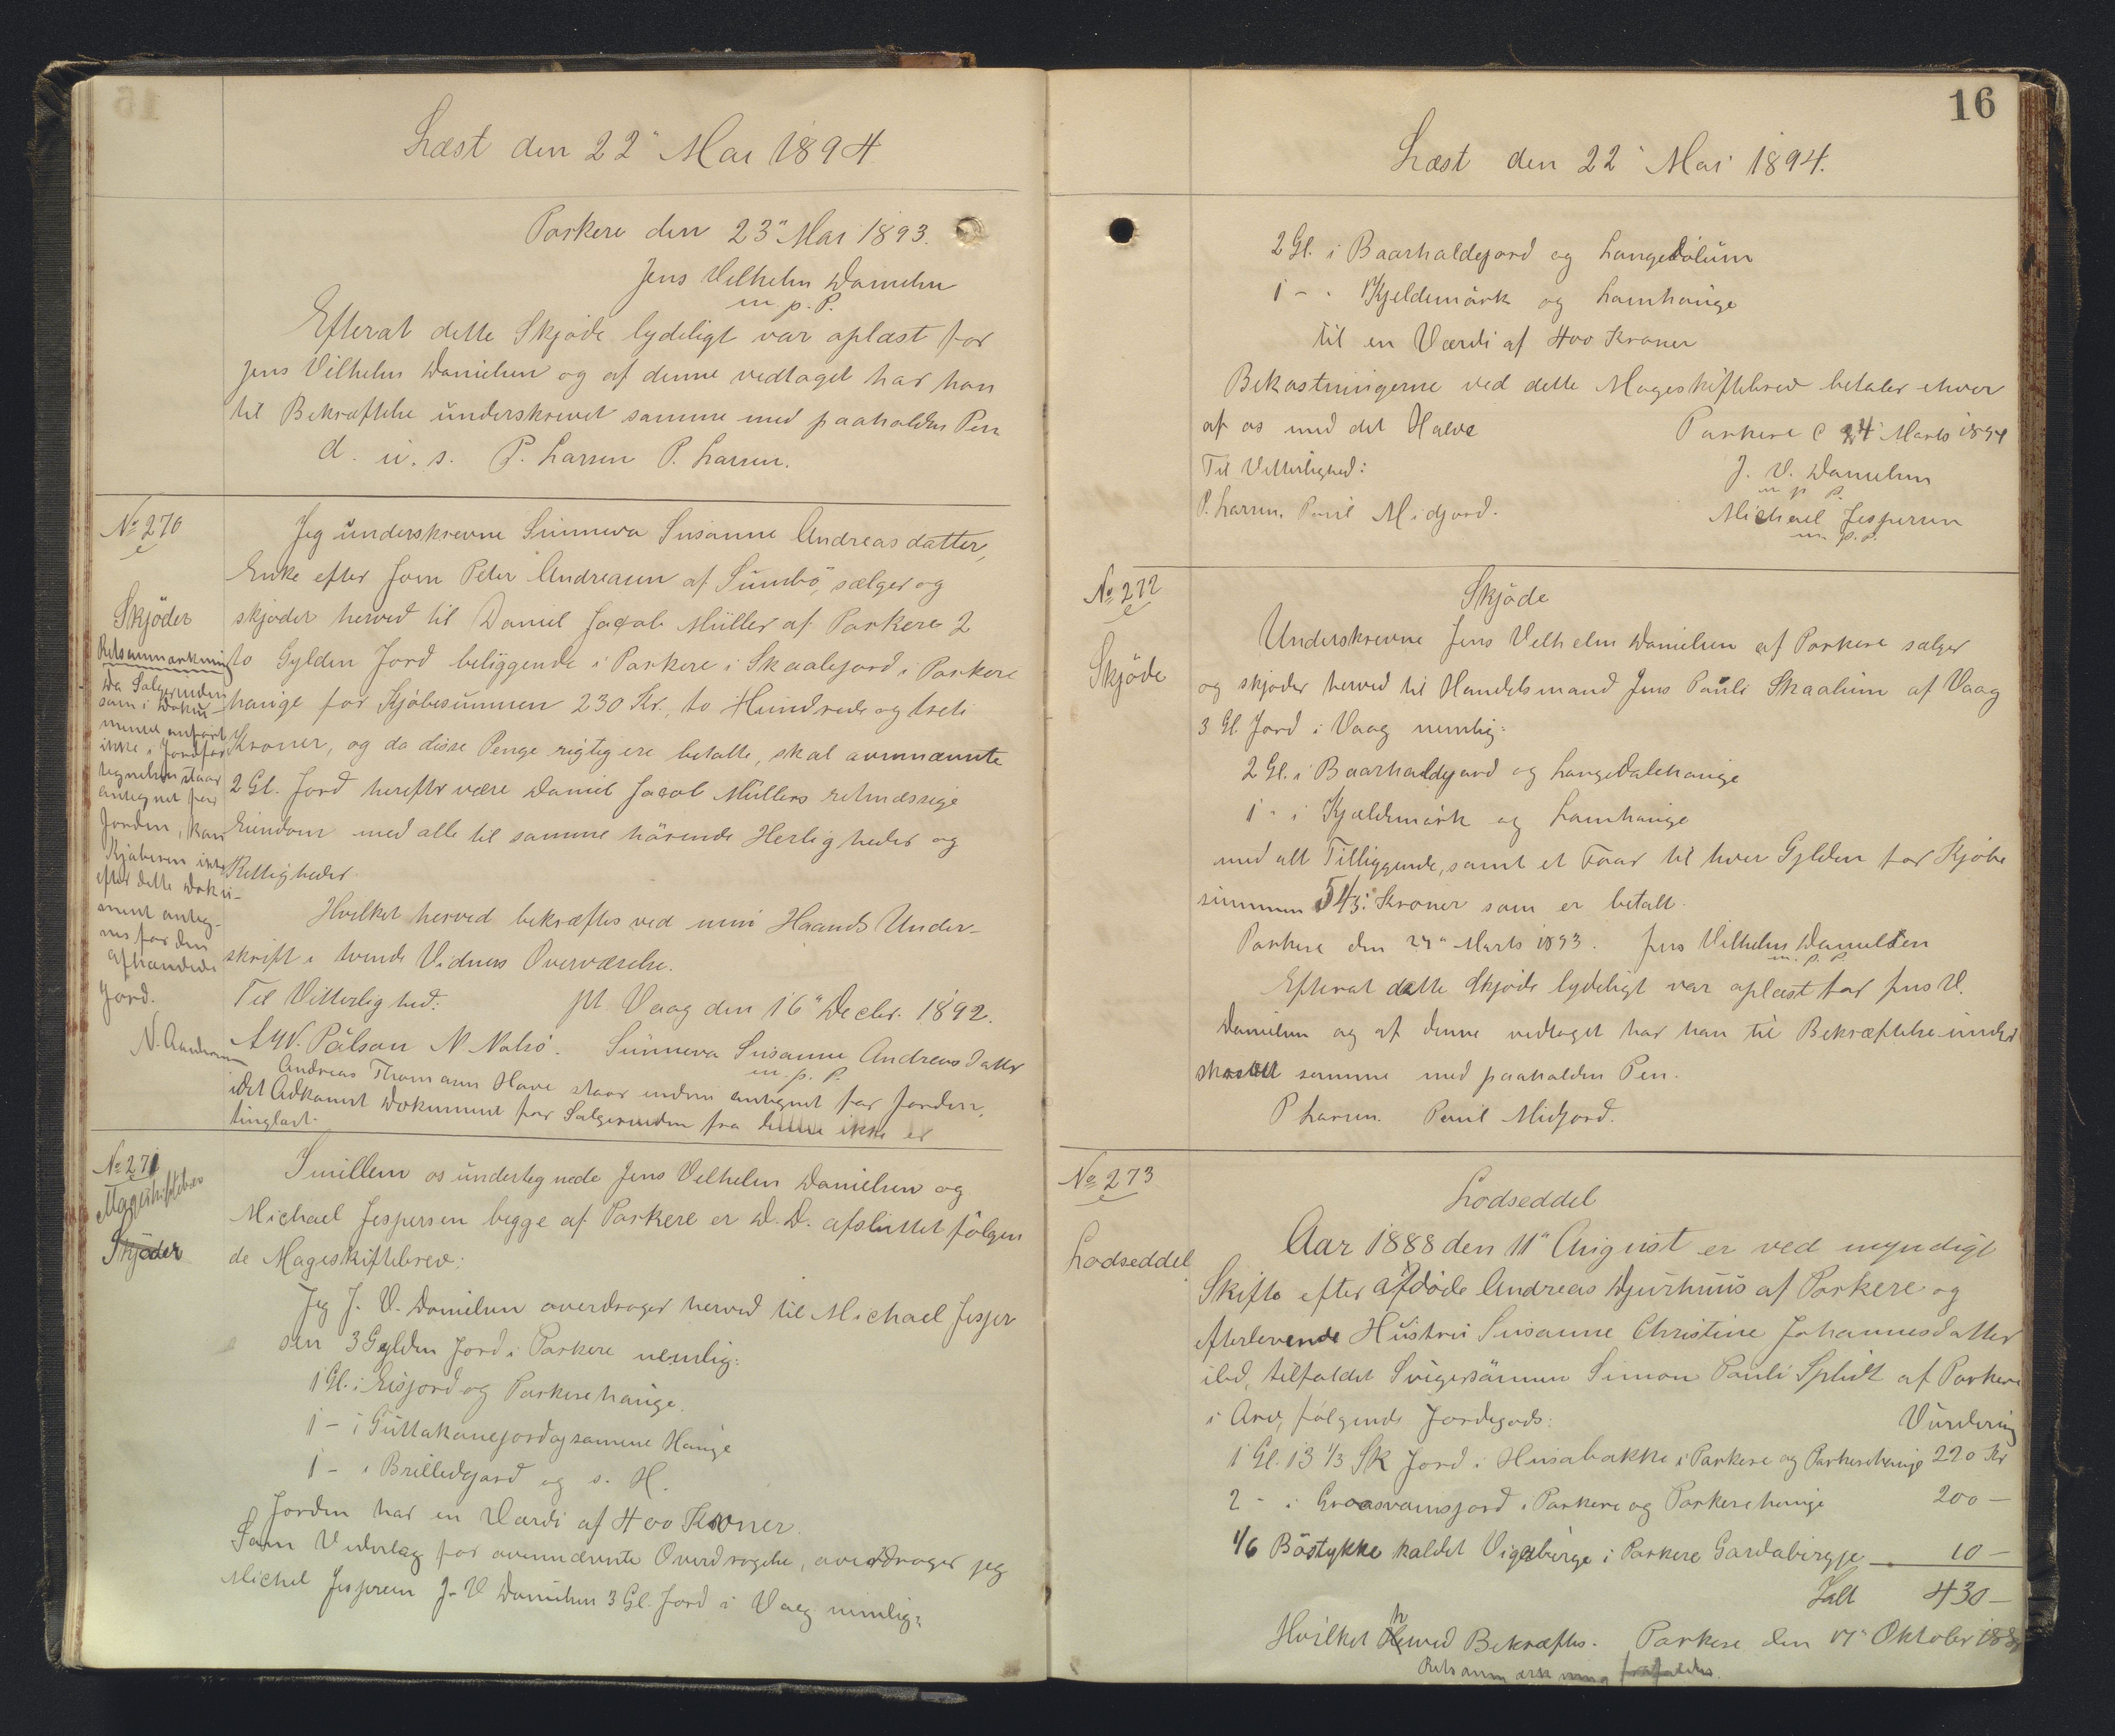 Læst den 22" Mai 1894
Porkere den 23" Mai 1893.
Jens Vilhelm Danielsen
m. p. P.
Efterat dette Skjøde lydeligt var oplæst for
Jens Vilhelm Danielsen og af denne vedtaget har han
til Bekræftelse underskrevet samme med paaholden Pen
d. u. s. P. Larsen P. Larsen.
No 270
Skjöder
Retsanmærkning
Da Sælgerinden
som i Doku-
mentet anført
ikke i Jordfor-
tegnelsen staar
antegnet for
Jorden, kan
Kjøberen ikke
efter dette Doku-
ment anteg-
nes for den
afhændede
Jord.
Jeg underskrevne Sunneva Susanne Andreasdatter,
Enke efter Joen Peter Andreasen af Sumbö, sælger og
skjøder herved til Daniel Jacob Müller af Porkere 2
to Gylden Jord beliggende i Porkere i Skaalejord i Porkere
hauge for Kjøbesummen 230 Kr., to Hundrede og treti
Kroner, og da disse Penge rigtig ere betalte, skal ovennævnte
2 Gl. Jord herefter være Daniel Jacob Müllers retmæssige
Eiendom med alle til samme hörende Herligheder og
Rettigheder.
Hvilket herved bekræftes ved min Haands Under-
skrift i tvende Vidners Overværelse.
Til Vitterlighed: pt. Vaag den 16" Decbr. 1892.
Pálson N Nolsö. Sunneva Susanne Andreasdatter
m. p. P.
Andreas Thomasen Hove staar endnu antegnet for Jorden,
idet Adkomst Dokument for Sælgerinden fra denne ikke er
tinglæst.
No 271
Mageskiftebrev
Skjöder
Imillem os undertegnede Jens Vilhelm Danielsen og
Michael Jespersen begge af Porkere er D. D. afsluttet fölgen
de Mageskiftebrev:
Jeg J. V. Danielsen overdrager herved til Michael Jesper
sen 3 Gylden Jord i Porkere nemlig:
1 Gl. i Eisjord og Porkerehauge.
1 - i Tuttakonejord og samme Hauge
1 - i Brilledgjord og s. H.
Jorden har en Værdi af 400 Kroner.
Som Vederlag for ovennævnte Overdragelse, overdrager jeg
Michel Jespersen J. V Danielsen 3 Gl. Jord i Vaag nemlig:
16
Læst den 22" Mai 1894.
2 Gl. i Baarhaldejord og Langedölum
1 - - Kjeldemörk og Lamhauge
til en Værdi af 400 Kroner
Bekostningerne ved dette Mageskiftebrev betaler enhver
af os med det Halve Porkere d 24" Marts 1894
Til Vitterlighed: J. V. Danielsen
m p P.
P. Larsen. Poul Midjord. Michael Jespersen
m. p. P.
No 272
Skjöde
Skjöde
Underskrevne Jens Velhelm Danielsen af Porkere sælger
og skjøder herved til Handelsmand Jens Pauli Skaalum af Vaag
3 Gl. Jord i Vaag nemlig:
2 Gl. i Baarhaldejord og Langedalehauge
1 - i Kjældemörk og Lamhauge
med alt Tilliggende, samt et Faar til hver Gylden for Kjøbe
summen 545 Kroner som er betalt.
Porkere den 24" Marts 1893. Jens Vilhelm Danielsen
m. p. P.
Efterat dette Skjøde lydeligt var oplæst for Jens V.
Danielsen og af denne vedtaget har han til Bekræftelse under
skrevet samme med paaholden Pen.
P Larsen. Poul Midjord.
No 273
Lodseddel
Lodseddel
Aar 1888 den 11" August er ved myndigt
Skifte efter afdöde Andreas Djurhuus af Porkere og
efterlevende Hustru Susanne Christine Johannesdatter
ibd, tilfaldet Svigersönnen Simon Pauli Splidt af Porkere
i Arv, fölgende Jordegods: Vurdering
1 Gl. 13 1/3 Sk Jord i Husabakke i Porkere og Porkerehauge 220 Kr
2 - i Groasvamsjord i Porkere og Porkerehauge 200 —
1/6 Böstykke kaldet Vigabirge i Porkere Gardabirgje — 10 —
Ialt 430 —
Hvilket herved Bekræftes. Porkere den 17" Oktober 188
Retsanmærkning frafaldes.